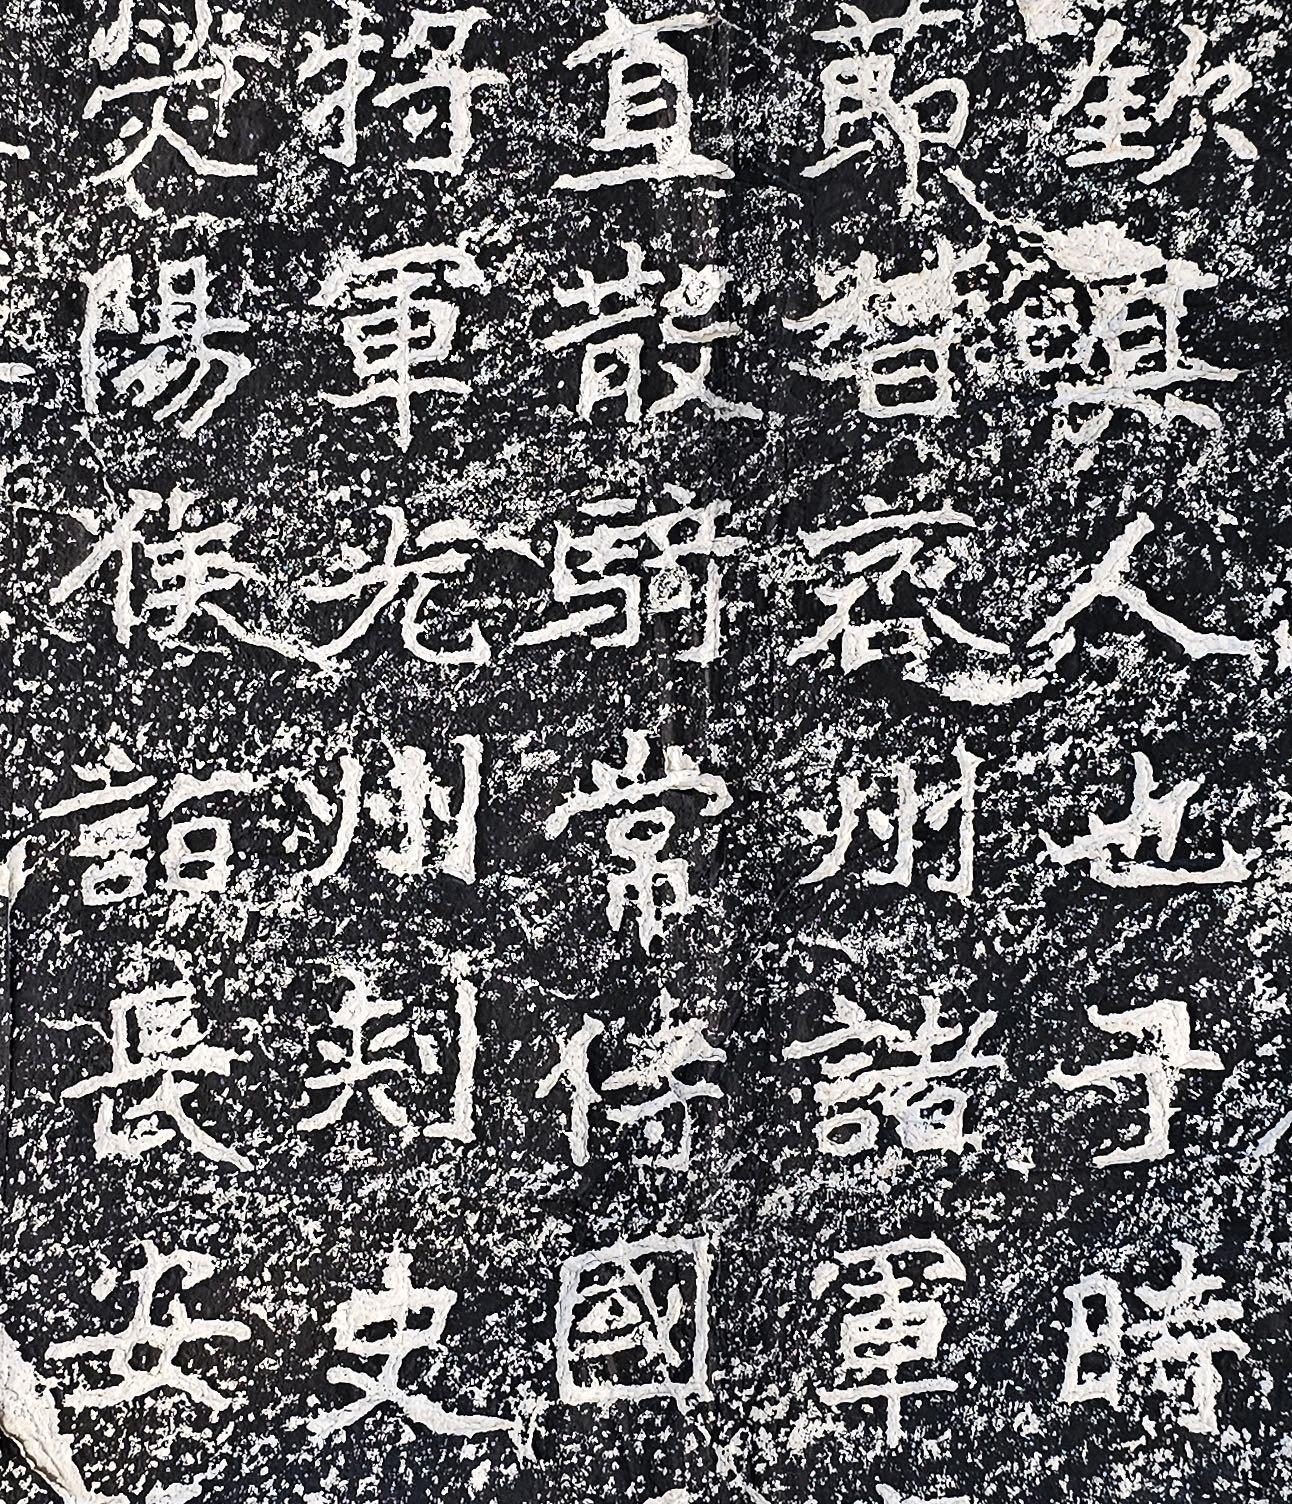 欽真人也于時
節督兖州諸軍
直散騎常侍國
將軍光州刺史
滎陽侯詔長安